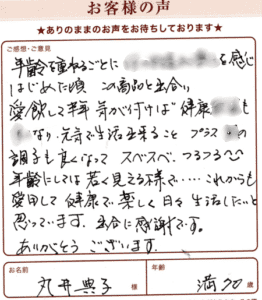 お客様の声
★ありのままのお声をお待ちしております★
ご感想・ご意見
年齢を重ねるごとに を感じ
はじめた頃 この商品と出会い
愛飲して半年 気が付けば健康
なり 元気で生活出来ること プラス の
調子も良くなって スベスベ、つるつる^^
年齢にしては若く見える様で……これからも
愛用して 健康で楽しく日々生活したいと
思っています。出会に感謝です。
ありがとうございます。
お名前
丸井典子 様
年齢
満70歳